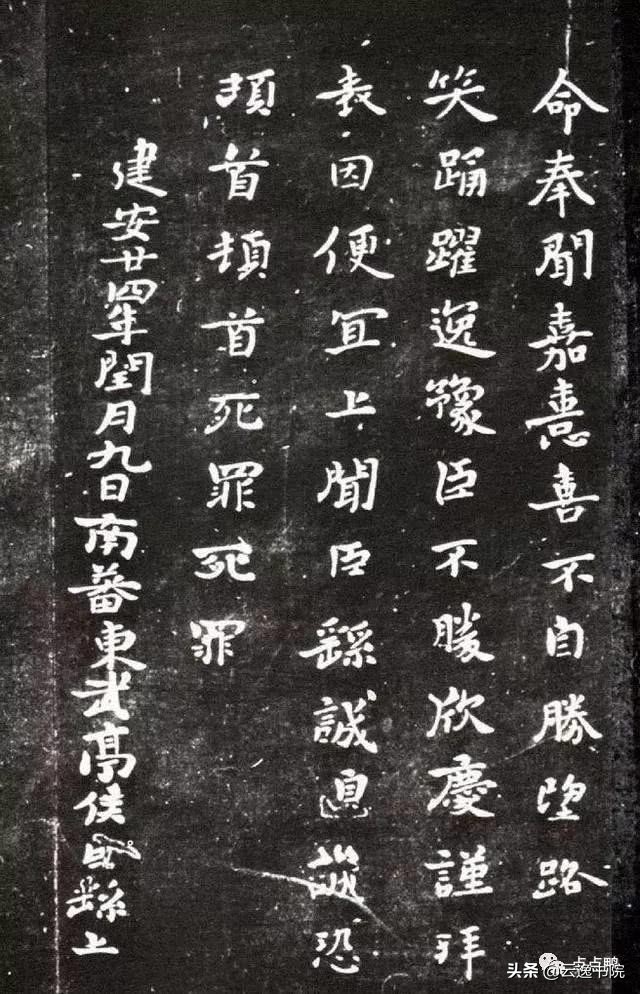 命奉聞嘉憙喜不自勝望路
笑踊躍逸豫臣不勝欣慶謹拜
表因便宜上聞臣繇誠惶誠恐
頓首頓首死罪死罪
建安廿四年閏月九日南蕃東武亭侯繇上
一点点鸭
头条@云逸书院